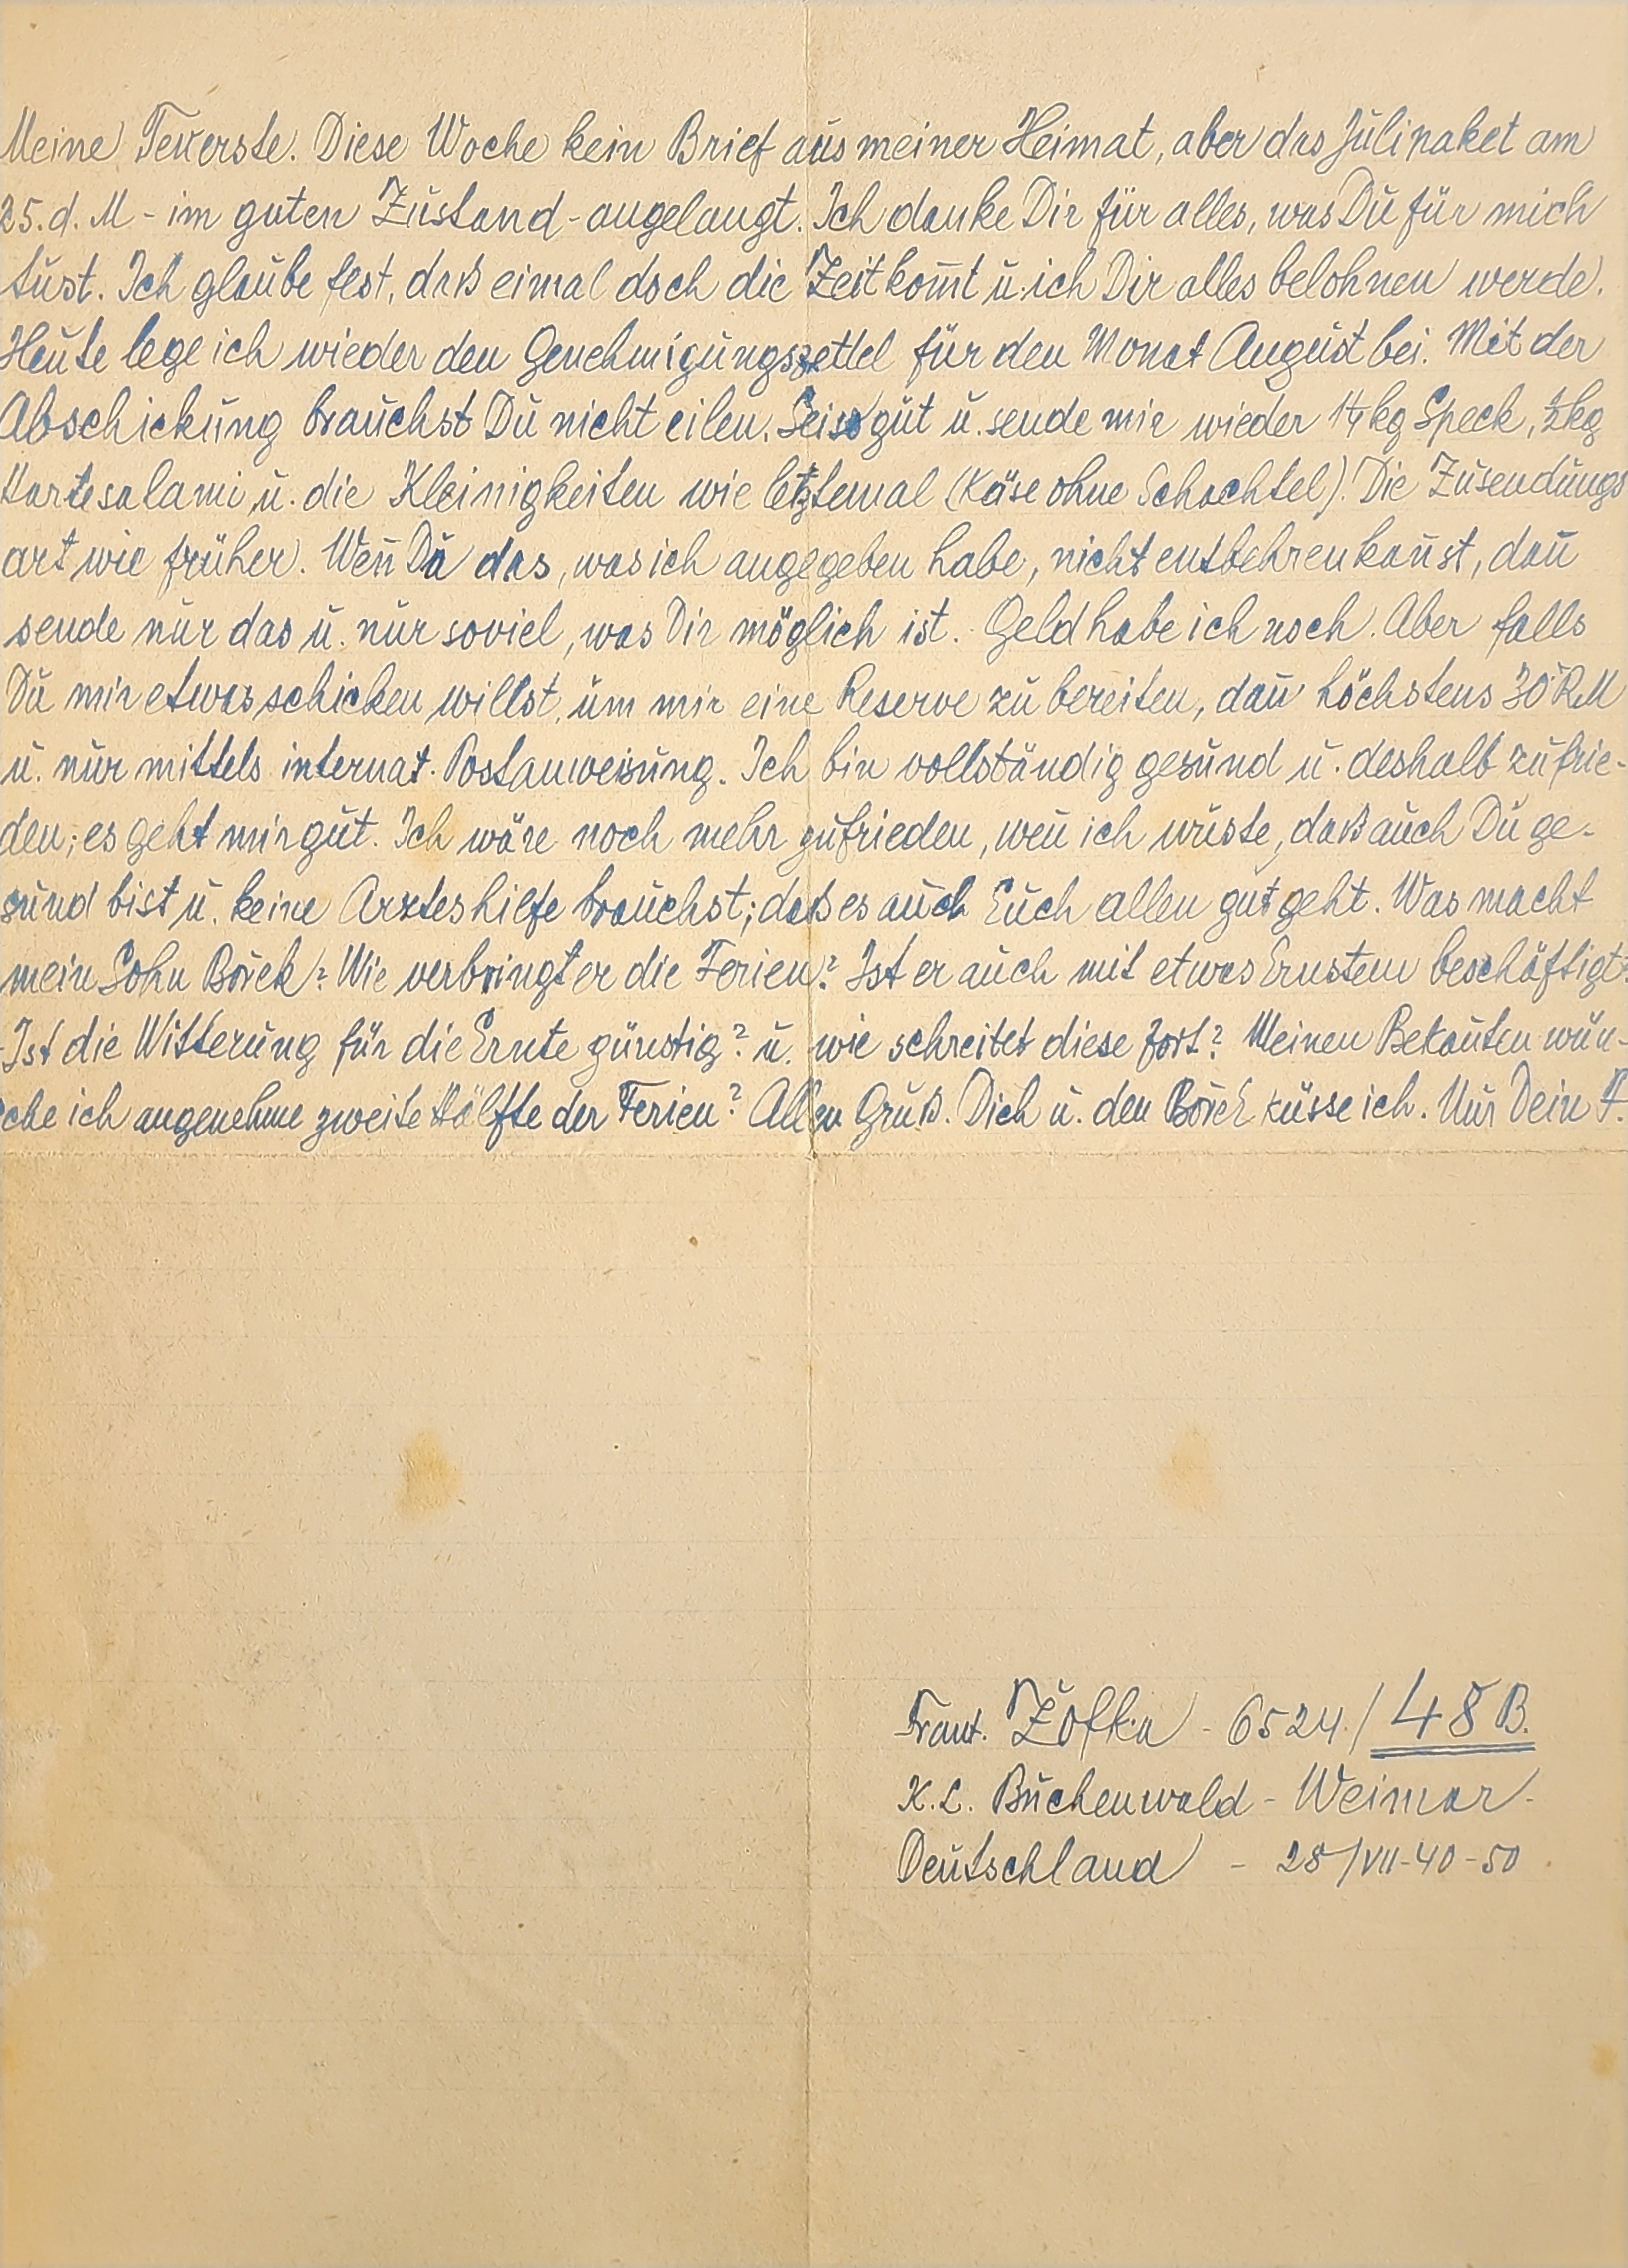 Meine Teuerste. Diese Woche kein Brief aus meiner Heimat, aber das Julipaket am
25. d. M - im guten Zustand - angelangt. Ich danke Dir für alles, was Du für mich
tust. Ich glaube fest, daß eimal doch die Zeit kom̅t u. ich Dir alles belohnen werde.
Heute lege ich wieder den Genehmigungszettel für den Monat August bei. Mit der
Abschickung brauchst Du nicht eilen. Sei so gut u. sende mir wieder kg Speck, ½kg
Hartesalami u. die Kleinigkeiten wie letztemal (Käse ohne Schachtel). Die Zusendungs
art wie früher. Wen̅ Du das, was ich angegeben habe, nicht entbehren kan̅st, dan̅
sende nur das u. nur soviel, was Dir möglich ist. Geld habe ich noch. Aber falls
Du mir etwas schicken willst, um mir eine Reserve zu bereiten, dan̅ höchstens 30 RM
u. nur mittels internat. Postanweisung. Ich bin vollständig gesund u. deshalb zufrie-
den; es geht mir gut. Ich wäre noch mehr zufrieden, wen̅ ich wüste, daß auch Du ge-
sund bist u. keine Arzteshilfe brauchst; daß es auch Euch allen gut geht. Was macht
mein Sohn Bořek? Wie verbringt er die Ferien? Ist er auch mit etwas Ernstem beschäftigt?
Ist die Witterung für die Ernte günstig? u. wie schreitet diese fort? Meinen Bekan̅ten wün-
sche ich angenehme zweite Hälfte der Ferien? Allen Gruß. Dich u. den Bořek küsse ich. Nur Dein F.
Frant. Žofka - 6524 / 48 B.
K. L. Buchenwald - Weimar -
Deutschland - 28/VII-40-50